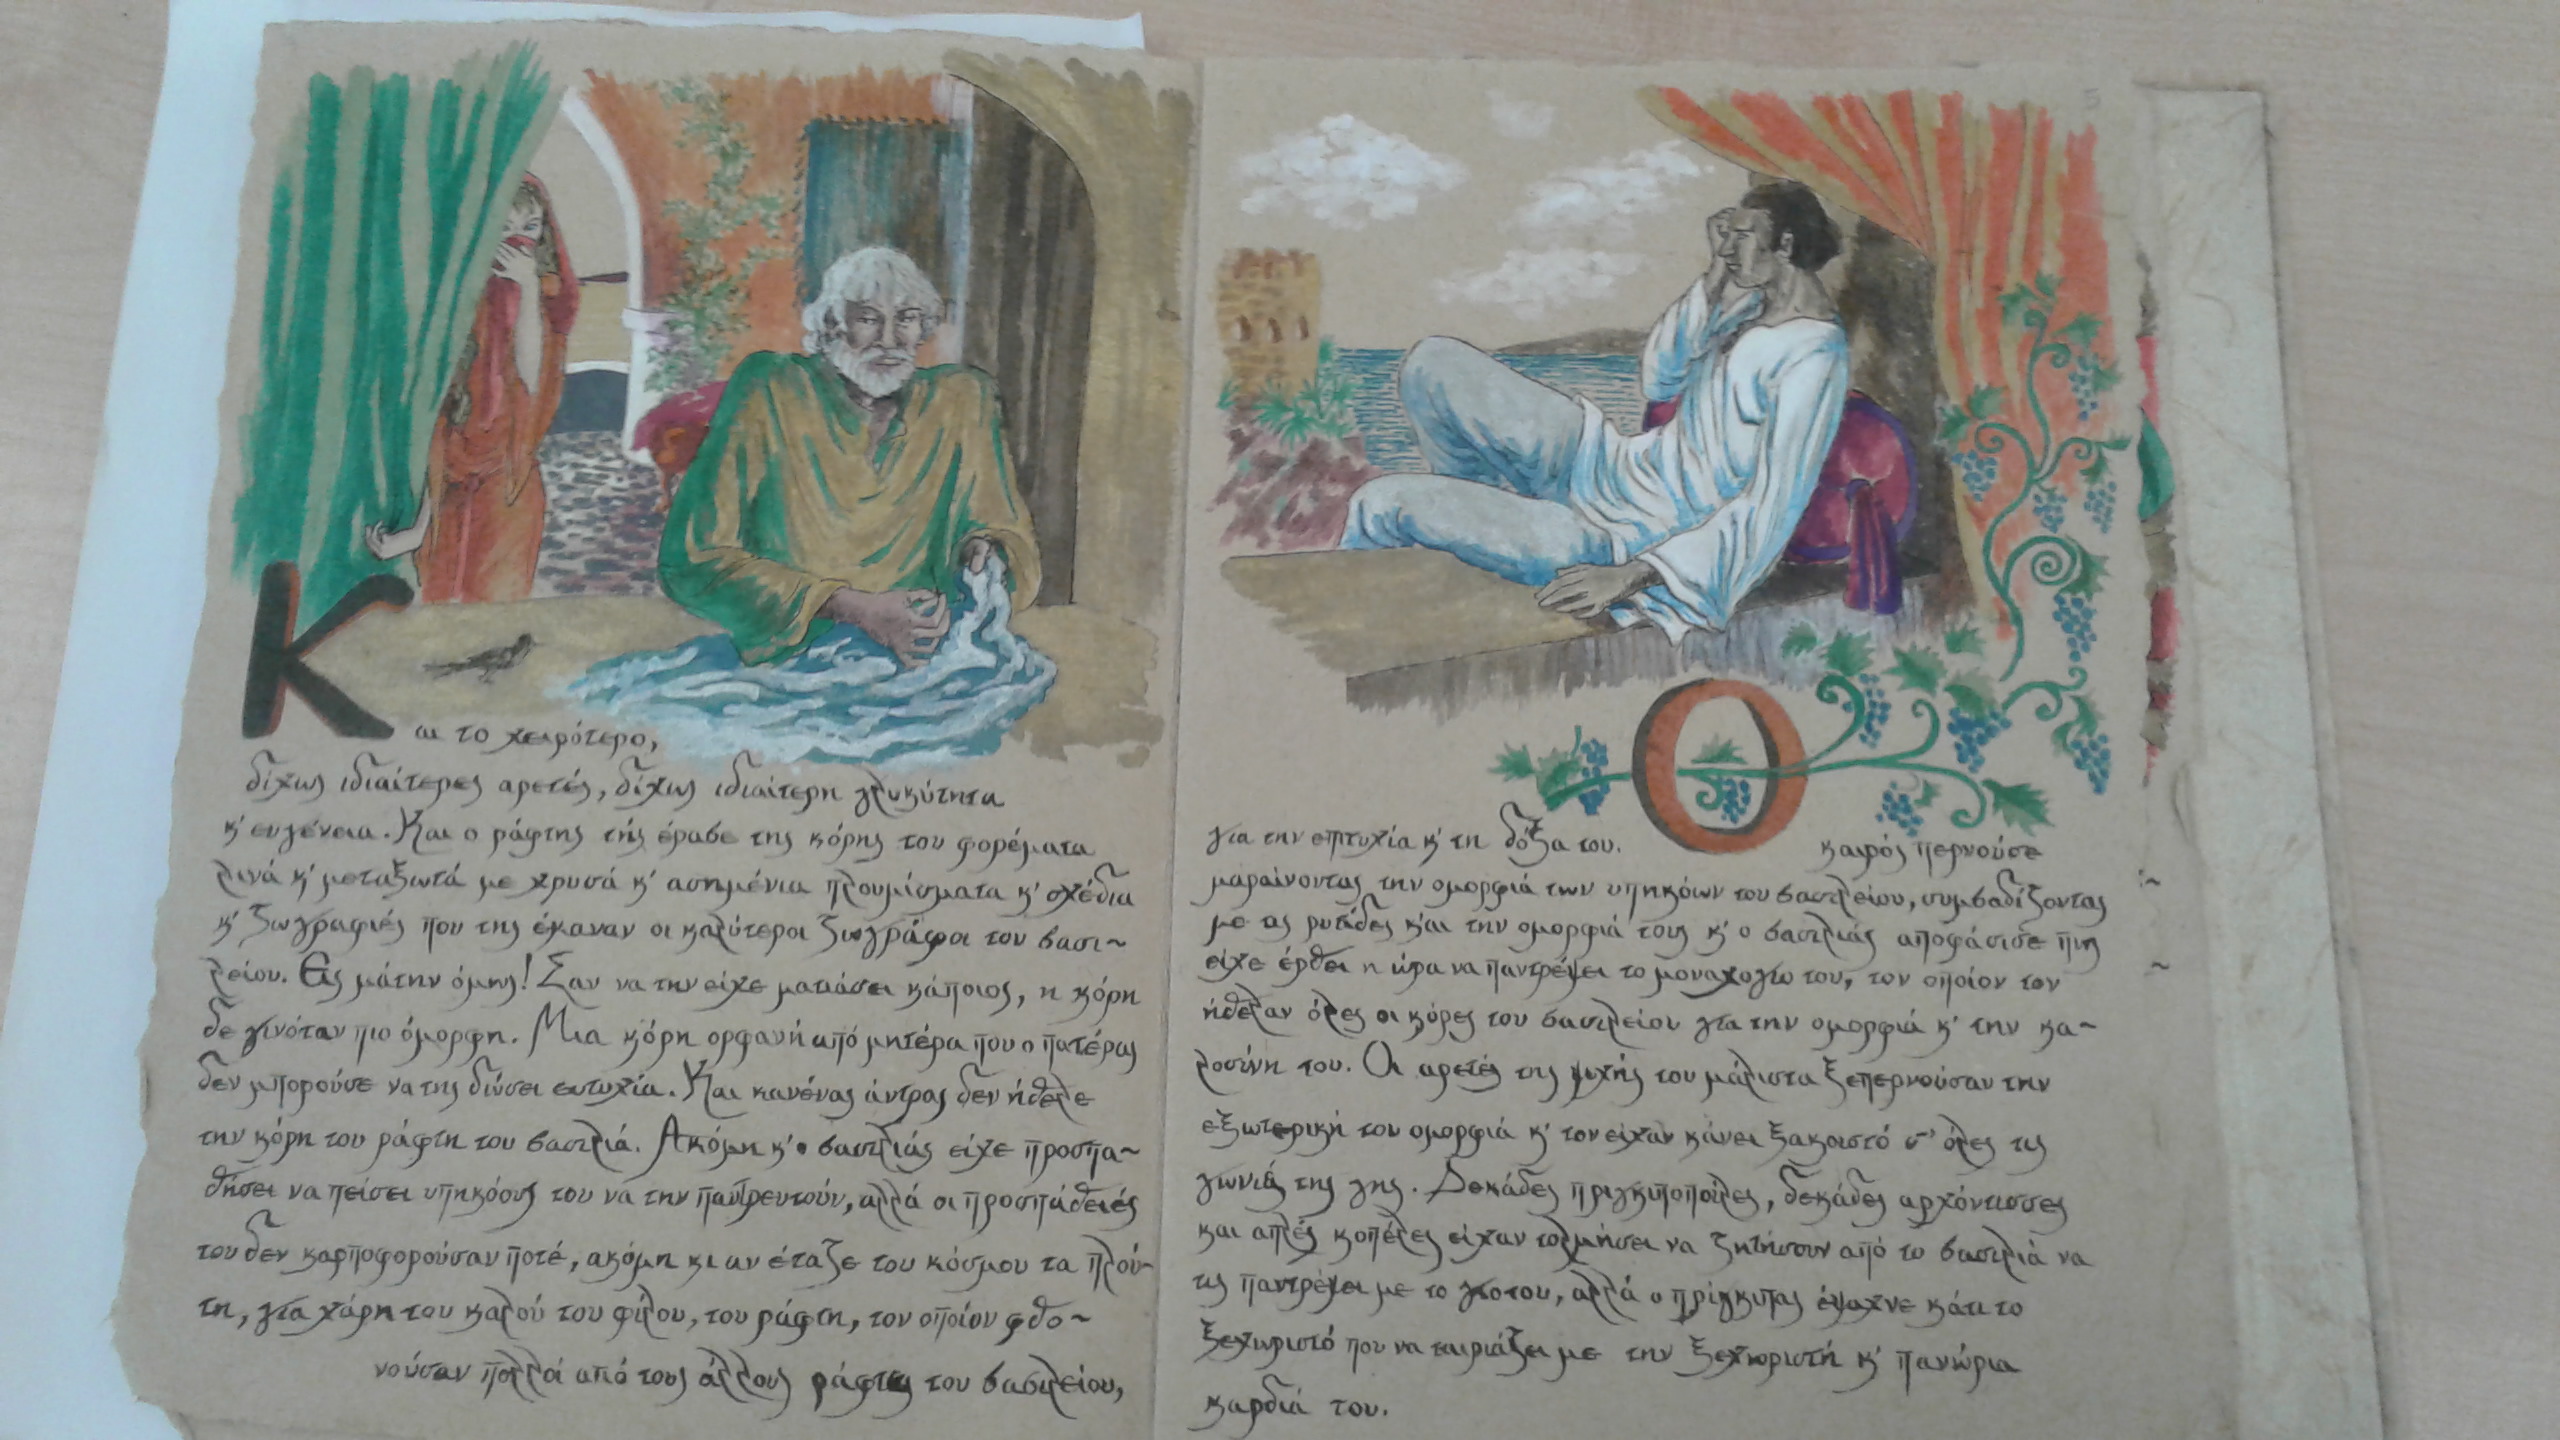 Κ αι το χειρότερο,
δίχως ιδιαίτερες αρετές, δίχως ιδιαίτερη γλυκύτητα
κ' ευγένεια. Και ο ράφτης τής έραβε της κόρης του φορέματα
λινά κ' μεταξωτά με χρυσά κ' ασημένια πλουμίσματα κ' σχέδια
κ' ζωγραφιές που της έκαναν οι καλύτεροι ζωγράφοι του βασι~
λείου. Εις μάτην όμως! Σαν να την είχε ματιάσει κάποιος, η κόρη
δε γινόταν πιο όμορφη. Μια κόρη ορφανή από μητέρα που ο πατέρας
δεν μπορούσε να της δώσει ευτυχία. Και κανένας άντρας δεν ήθελε
την κόρη του ράφτη του βασιλιά. Ακόμη κ' ο βασιλιάς είχε προσπα~
θήσει να πείσει υπηκόους του να την παντρευτούν, αλλά οι προσπάθειές
του δεν καρποφορούσαν ποτέ, ακόμη κι αν έταζε του κόσμου τα πλού~
τη, για χάρη του καλού του φίλου, του ράφτη, τον οποίον φθο~
νούσαν πολλοί από τους άλλους ράφτες του βασιλείου,
για την επιτυχία κ' τη δόξα του.
Ο καιρός περνούσε
μαραίνοντας την ομορφιά των υπηκόων του βασιλείου, συμβαδίζοντας
με τις ρυτίδες και την ομορφιά τους κ' ο βασιλιάς αποφάσισε πως
είχε έρθει η ώρα να παντρέψει το μοναχογιο του, τον οποίον τον
ήθελαν όλες οι κόρες του βασιλείου για την ομορφιά κ' την κα~
λοσύνη του. Οι αρετές της ψυχής του μάλιστα ξεπερνούσαν την
εξωτερική του ομορφιά κ' τον είχαν κάνει ξακουστό σ' όλες τις
γωνιές της γης. Δεκάδες πριγκιποπούλες, δεκάδες αρχόντισσες
και απλές κοπέλες είχαν τολμήσει να ζητήσουν από το βασιλιά να
τις παντρέψει με το γιο του, αλλά ο πρίγκιπας έψαχνε κάτι το
ξεχωριστό που να ταιριάζει με την ξεχωριστή κ' πανώρια
καρδιά του.